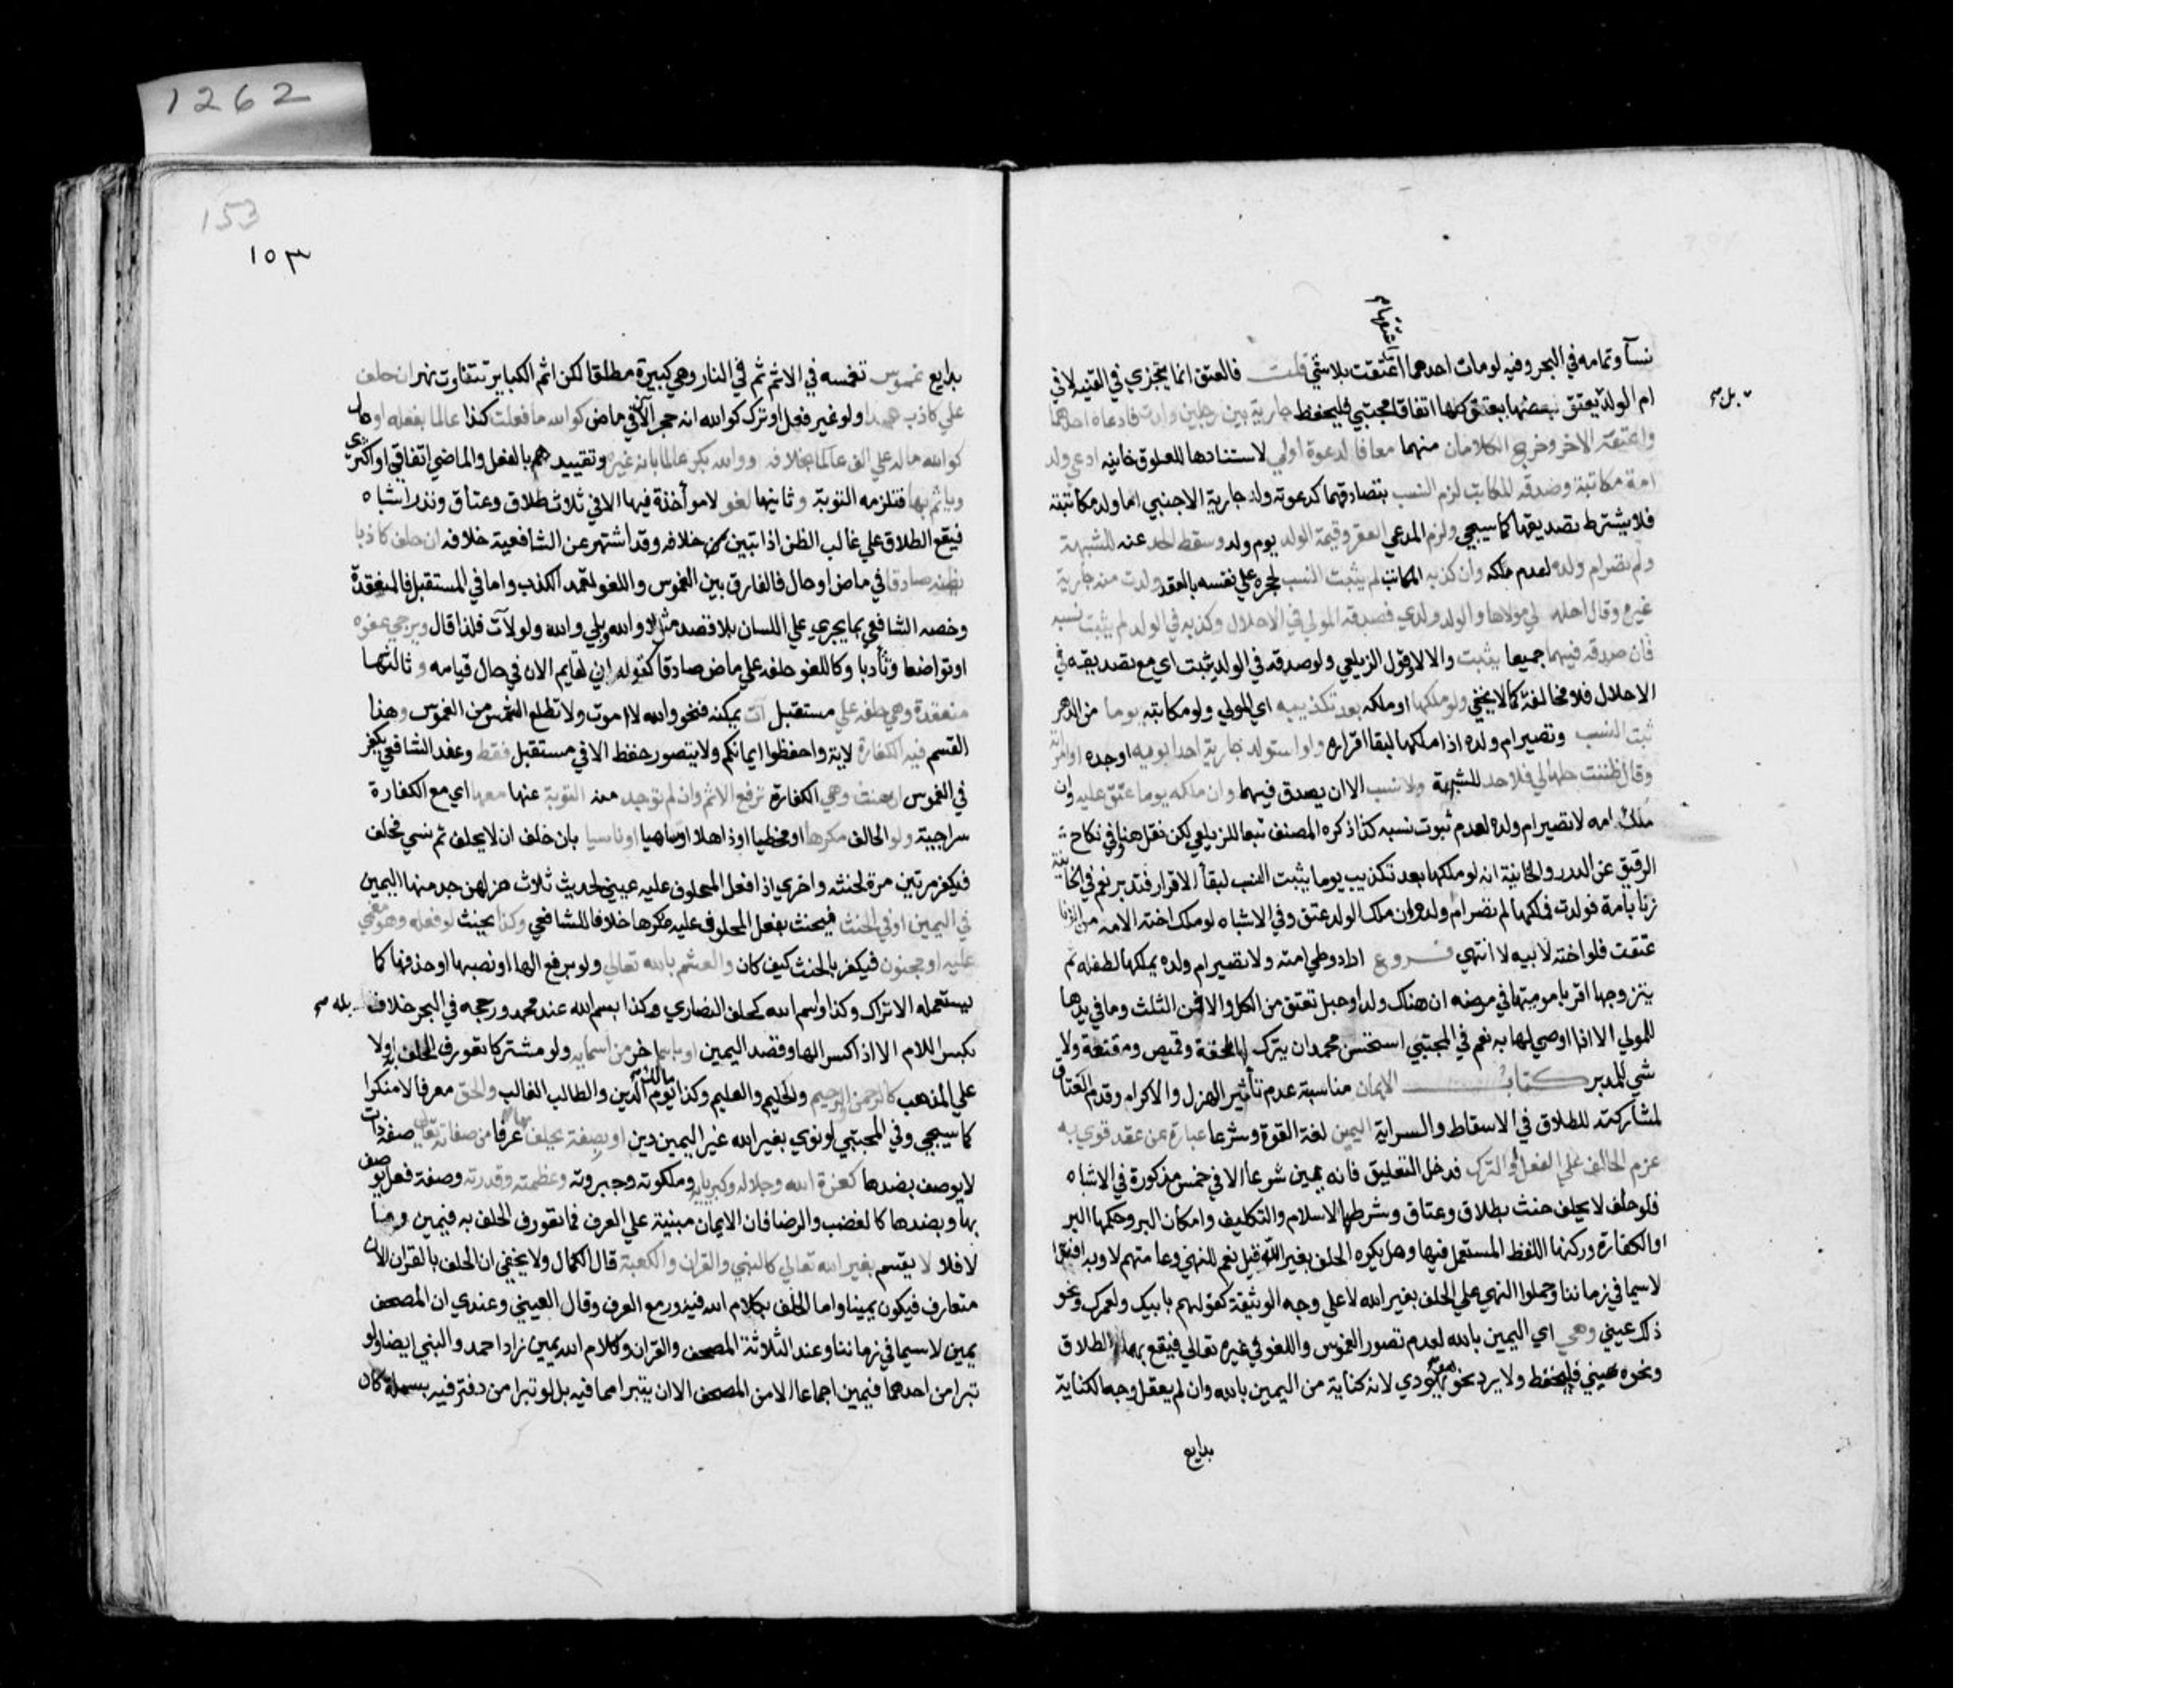 1262
نسآ وتمامه في البحر وفيه لو مات احدهما اعتقت بلا شي قلت فالعتق انما يتجزي في القنيه لا في
ام الولد بل يعتق بعضها بعتق كلها اتفاقا مجتبي فليحفظ جارية بين رجلين ولدت فادعاه احدهما
واعتقه الاخر وخرج الكلامان منهما معا فالدعوة اولي لاستنادها للعلوق خانيه ادعي ولد
امة مكاتبة وصدقه المكاتب لزم النسب بتصادقهما كدعوته ولد جارية الاجنبي اما ولد مكاتبته
فلا يشترط تصديقها كما سيجي ولزم المدعي العقر وقيمة الولد يوم ولد وسقط الحد عنه للشبهة
ولم تصر ام ولده لعدم ملكه وان كذبه المكاتب لم يثبت النسب لحجره علي نفسه بالعقد ولدت منه جارية
غيره وقال احلها لي مولاها والولد ولدي فصدقه المولي في الاحلال وكذبه في الولد لم يثبت نسبه
فان صدقه فيهما جميعا يثبت والا لا وقول الزيلعي ولو صدقه في الولد يثبت اي مع تصديقه في
الاحلال فلا مخالفة كما لا يخفي ولو ملكها او ملكه بعد تكذيبه اي المولي ولو مكاتبه يوما من الدهر
ثبت النسب وتصير ام ولده اذا ملكها لبقا اقراره ولو استولد جارية احد ابويه او جده او امراته
وقال ظننت حلها لي فلا حد للشبهة ولا نسب الا ان يصدق فيهما وان ملكه يوما عتق عليه وان
ملك امه لا تصير ام ولده لعدم ثبوت نسبه كذا ذكره المصنف تبعا للزيلعي لكن نقل هنا وفي نكاح
الرقيق عن الدرر والخانية انه لو ملكها بعد تكذيبه يوما يثبت النسب لبقأ الاقرار فتدبر نعم في الخانية
زنا بامة فولدت فملكها لم تصر ام ولده وان ملك الولد عتق وفي الاشباه لو ملك اخته لامه من الزنا
عتقت فلو اخته لابيه لا انتهي فروع اراد وطي امته ولا تصير ام ولده يملكها لطفله ثم
يتزوجها اقر بامومتها في مرضه ان هناك ولد او حبل تعتق من الكل والا فمن الثلث وما في يدها
للمولي الا اذا اوصي لها به نعم في المجتبي استحسن محمد ان يترك لها ملحفة وقميص ومقنعة ولا
شي للمدبر كتاب الايمان مناسبة عدم تأثير الهزل والاكراه وقدم العتاق
لمشاركته للطلاق في الاسقاط والسراية اليمين لغة القوة وشرعا عبارة عن عقد قوي به
عزم الحالف علي الفعل او الترك فدخل التعليق فانه يمين شرعا الا في خمس مذكورة في الاشباه
فلو حلف لا يحلف حنث بطلاق وعتاق وشرطها الاسلام والتكليف وامكان البر وحكمها البر
او الكفارة وركنها اللفظ المستعمل فيها وهل يكره الحلف بغير الله قيل نعم للنهي وعامتهم لا وبه افتوا
لا سيما في زماننا وحملوا النهي علي الحلف بغير الله لا علي وجه الوثيقة كقولهم بابيك ولعمرك ونحو
ذلك عيني وهي اي اليمين بالله لعدم تصور الغموس واللغو في غيره تعالي فيقع بهما الطلاق
ونحوه عيني فليحفظ ولا يرد نحو هو يهودي لانه كناية من اليمين بالله وان لم يعقل وجه الكناية
بدايع
153
١٥٣
بدايع غموس تغمسه في الاثم ثم في النار وهي كبيرة مطلقا لكن اثم الكباير تتفاوت نهر ان حلف
علي كاذب عمدا ولو غير فعل او ترك كوالله انه حجر الان في ماض كوالله ما فعلت كذا عالما بفعله او حال
كوالله ما له علي الف عالما بخلافه ووالله بكر عالما بانه غيره وتقييدهم بالفعل والماضي اتفاقي او اكثري
وياثم بها فتلزمه التوبة وثانيها لغو لا مواخذة فيها الا في ثلاث طلاق وعتاق ونذر اشباه
فيقع الطلاق علي غالب الظن اذا تبين خلافه وقد اشتهر عن الشافعية خلافه ان حلف كاذبا
يظنه صادقا في ماض او حال فالفارق بين الغموس واللغو تعمد الكذب واما في المستقبل فالمنعقدة
وخصه الشافعي بما يجري علي اللسان بلا قصد مثل لا والله وبلي والله ولو لآت فلذا قال ويرجي عفوه
او تواضعا وتأدبا وكاللغو حلفه علي ماض صادقا كقوله اني لقايم الان في حال قيامه وثالثها
منعقدة وهي حلفه علي مستقبل آت يمكنه فنحو والله لا اموت ولا تطلع الشمس من الغموس وهذا
القسم فيه الكفارة لاية واحفظوا ايمانكم ولا يتصور حفظ الا في مستقبل فقط وعند الشافعي يكفر
في الغموس ان حنث وهي الكفارة ترفع الاثم وان لم توجد منه التوبة عنها معها اي مع الكفارة
سراجية ولو الحالف مكرها او مخطيا او ذاهلا او ساهيا او ناسيا بان حلف ان لا يحلف ثم نسي فحلف
فيكفر مرتين مرة لحنثه واخري اذا فعل المحلوف عليه عيني لحديث ثلاث هزلهن جد منها اليمين
في اليمين او في الحنث فيحنث بفعل المحلوف عليه مكرها خلافا للشافعي وكذا يحنث لو فعله وهو مغمي
عليه او مجنون فيكفر بالحنث كيف كان والقسم بالله تعالي ولو برفع الها او نصبها او حذفها كما
يستعمله الاتراك وكذا واسم الله كحلف النصاري وكذا بسم الله عند محمد ورجحه في البحر خلاف
بكسر اللام الا اذا كسر الها وقصد اليمين او باسم اخر من اسمايه ولو مشتركا تعورف الحلف به او لا
علي المذهب كالرحمن والرحيم والحليم والعليم وكذا مالك يوم الدين والطالب الغالب والحق معرفا لا منكرا
كما سيجي وفي المجتبي لو نوي بغير الله غير اليمين دين او بصفة يحلف بها عرفا من صفاته تعالي صفة ذات
لا يوصف بضدها كعزة الله وجلاله وكبريايه وملكوته وجبروته وعظمته وقدرته وصفة فعل يوصف
بها وبضدها كالغضب والرضا فان الايمان مبنية علي العرف فما تعورف الحلف به فيمين وما
لا فلا لا يقسم بغير الله تعالي كالنبي والقران والكعبة قال الكمال ولا يخفي ان الحلف بالقران الان
متعارف فيكون يمينا واما الحلف بكلام الله فيدور مع العرف وقال العيني وعندي ان المصحف
يمين لا سيما في زماننا وعند الثلاثة المصحف والقران وكلام الله يمين زاد احمد والنبي ايضا ولو
تبرا من احدهما فيمين اجماعا الا من المصحف الا ان يتبرا مما فيه بل لو تبرا من دفتر فيه بسملة كان